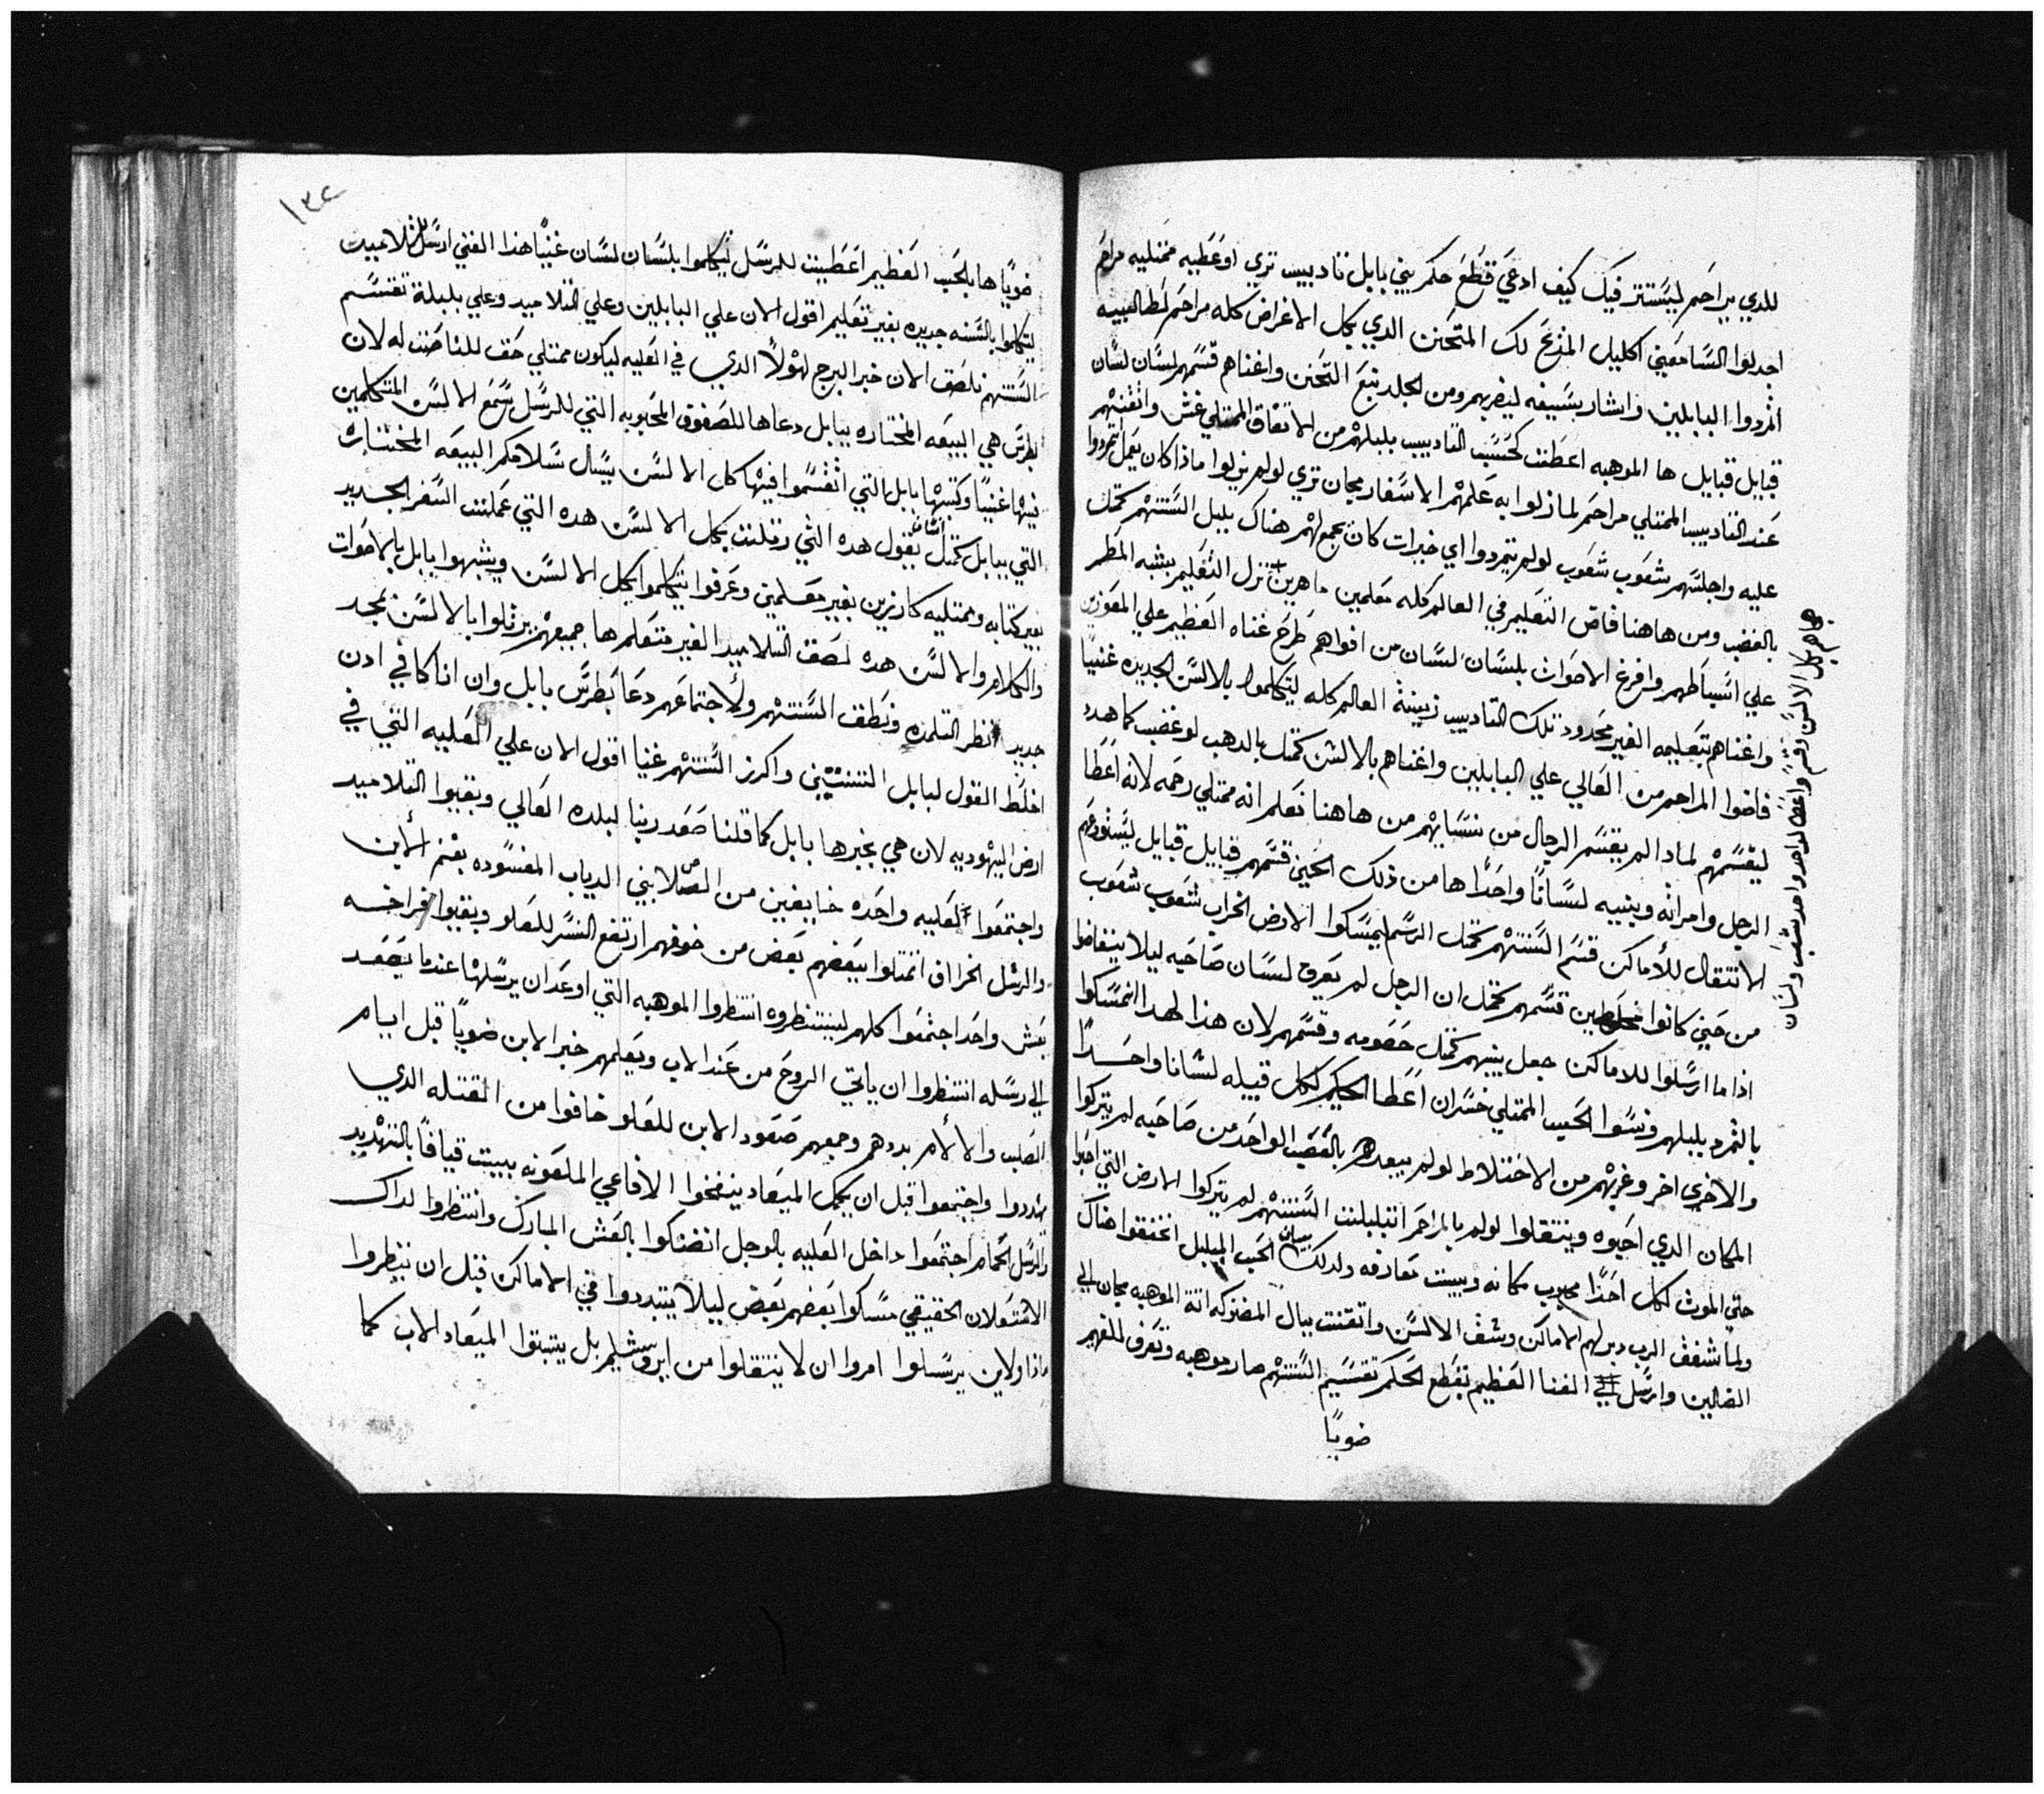 للدي براحم ليستتر فيك كيف ادعي قطع حكم بيني بابل تاديب تري او عطيه ممتليه مراحم
اجدلوا السامعين اكليل المديح لك المتحنن الدي بكل الاغراض كله مراحم لطالبيه
اتمردوا البابلين واشار بسيفه ليضربهم ومن الجلد نبع التحنن واغناهم قسمهم لسان لسان
قبايل قبايل ها الموهبه اعطت كحسب التاديب بلبلهم من الاتفاق الممتلي غش واتقنهم
عند التاديب الممتلي مراحم لما زلوا به علمهم الاسفار مجان تري لو لم يزلوا ماذا كان يعمل اتمردوا
عليه واجلسهم شعوب شعوب لو لم يتمردوا اي خيرات كان يجمع لهم هناك بلبل السنتهم كمثل
بالغضب ومن هاهنا فاض التعليم في العالم كله معلمين ماهرين نزل التعليم بشبه المطر
علي اسباطهم وافرغ الاصوات بلسان لسان من افواهم طرح غناه العظيم علي المعوزين
واغناهم بتعليمه الغير محدود تلك التاديب زينة العالم كله ليتكلموا بالالسن الجديده غنيا
فاضوا المراحم من العالي علي البابلين واغناهم بالالسن كمثل بالدهب لو غضب كما هدد
ليقسمهم لمادا لم يقسم الرجال من نسايهم من هاهنا نعلم انه ممتلي رحمه لانه اعطا
الرجل وامراته وبنيه لسانا واحدا ها من ذلك الحين قسمهم قبايل قبايل ليستودعهم
الانتقال للاماكن قسم السنتهم كمثل الرسم ليمسكوا الارض الخراب شعوب شعوب
من حيني كانوا مخلوطين قسمهم كمثل ان الرجل لم يعرف لسان صاحبه ليلا يتفاضوا
اذا ما ارسلوا للاماكن جعل بينهم كمثل خصومه وقسمهم لان هذا لهدا اتمسكوا
بالتمرد بلبلهم ونسوا الحب الممتلي خسران اعطا الحكيم لكل قبيله لسانا واحدا
والاخري اخر وغربهم من الاختلاط لو لم يبعدهم بالغضب الواحد من صاحبه لم يتركوا
المكان الدي احبوه وينتقلوا لو لم بالمراحم اتبلبلت السنتهم لم يتركوا الارض التي احبوا
حتي الموت لكل احدا محبوب مكانه وبيت معارفه ولدلك بيان الحب المبلبل اتفقوا هناك
ولما شفف الرب دبر لهم الاماكن وشف الالسن واتقنت ببال المفتركه اتة الموهبه مجان الي
الضالين وارسل الي الغنا العظيم بقطع الحكم تقسيم السنتهم صار موهبه وتعرف للفهيم
ضويا
هم بكل الالسن وقسم واعطا لواحد واحد شعب ولسان
١٣٤
ضويا ها بلحب العظيم اعطيت للرسل ليتكلموا بلسان لسان غنيا هذا الغني ارسل للتلاميد
ليتكلموا بالسنه جديده بغير تعليم اقول الان علي البابلين وعلي التلاميد وعلي بلبلة تقسم
السنتهم نلصق الان خبر البرج لهولا الدي في العليه ليكون ممتلي حق للناصت له لان
بطرس هي البيعه المختاره ببابل دعاها للصفوف المحبوبه التي للرسل سمع الالسن المتكلمين
فيها غنيا وكتبها بابل التي اتقسموا فيها كل الالسن يسال سلامكم البيعه المختاره
التي ببابل كمثل انسان يقول هده التي رتلت بكل الالسن هده التي عملت السفر الجديد
بغير كتابه وممتليه كارزين بغير معلمين وعرفوا يتكلموا بكل الالسن ويشبهوا بابل بالاصوات
والكلام والالسن هده لصق التلاميد الغير متعلم ها جميعهم يرتلوا بالالسن بمجد
جديد انظر التلمده ونطق السنتهم ولاجتماعهم دعا بطرس بابل وان انا كافي ادن
اخلط القول لبابل التنتين واكرز السنتهم غنيا اقول الان علي العليه التي في
ارض اليهوديه لان هي يخبرها بابل كما قلنا صعد ربنا لبلده العالي وبقيوا التلاميد
واجتمعوا العليه واحده خايفين من الصلابني الدياب المفسوده بغنم الابن
والرسل الخراف اتمتلوا ببعضهم بعض من خوفهم ارتفع النسر للعلو وبقيوا فراخه
بعش واحد اجتمعوا كلهم لينتظروه انتظروا الموهبه التي اوعد ان يرسلها عندما يصعد
الي رسله انتظروا ان ياتي الروح من عند الاب ويعلمهم خبر الابن ضويا قبل ايام
الصلب والالام بددهم وجمعهم صعود الابن للعلو خافوا من القتله الدي
هددوا واجتمعوا قبل ان يكمل الميعاد ينفخوا الافاعي الملعونه ببيت قيافا بالتهديد
والرسل الحمام اجتمعوا داخل العليه بالوجل اتضنكوا بالعش المبارك وانتظروا لداك
الاشتعلان الحقيقي مسكوا بعضهم بعض ليلا يتبددوا في الاماكن قبل ان ينظروا
ماذا ولاين يرسلوا امروا ان لا ينتقلوا من ايروشليم بل يتبتوا الميعاد الاب كما